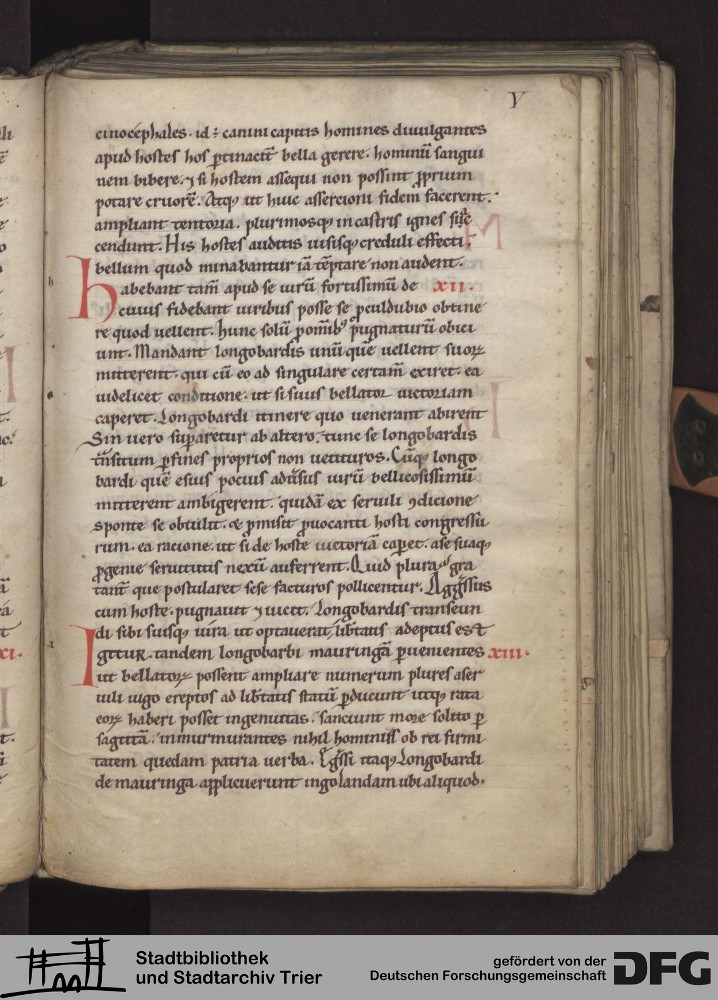 V
cinocephales· id ÷ canini capitis homines diuulgantes
apud hostes hos ꝑtinacit̄ bella gerere· hominū sangui
nem bibere· ⁊ si hostem assequi non possint ꝓprium
potare cruorē. Atq; ut huic assercioni fidem facerent·
ampliant tentoria· plurimosq; in castris ignes
cendunt. His hostes auditis uisisq; creduli effecti·
bellum quod minabantur iā tēptare non audent.
habebant tam̄ apud se uirū fortissimū de xii.
cuius fidebant uiribus posse se ꝓculdubio obtine
re quod uellent. hunc solū ꝓ om̄ib; pugnaturū obici
unt. Mandant longobardis unū quē uellent suoꝝ
mitterent· qui cū eo ad singulare certam̄ exiret· ea
uidelicet conditione· ut si suus bellator uictoriam
caperet· Longobardi itinere quo uenerant abirent
Sin uero suꝑaretur ab altero· tunc se longobardis
t̄nsitum ꝑ fines proprios non uetituros. Cūq; longo
bardi quē e suis pocius adūsus uirū bellicosissimū
mitterent ambigerent· quidā ex seruili ꝯdicione
sponte se obtulit· & ꝓmisit ꝓuocanti hosti congressu
rum· ea racione· ut si de hoste uictoriā caꝑet· a se suaq;
ꝓgenie seruitutis nexū auferrent. Quid plura· gra
tant̄ que postularet sese facturos pollicentur. Aggssus
cum hoste· pugnauit ⁊ uicit. Longobardis transeun
di sibi suisq; iura ut optauerat lib̄tatis adeptus est
Igitur· tandem longobarbi mauringā ꝑuenientes xiii·
ut bellatoꝝ possent ampliare numerum plures a ser
uili iugo ereptos ad lib̄tatis statū ꝑducunt utq; rata
eoꝝ haberi posset ingenuitas· sanciunt more solito ꝑ
sagittā· inmurmurantes nihil hominus ob rei firmi
tatem quedam patria uerba. Egssi itaq; Longobardi
de mauringa applicuerunt in golandam ubi aliquod·
xi·
Stadtbibliothek
und Stadtarchiv Trier
gefördert von der
Deutschen Forschungsgemeinschaft
DFG